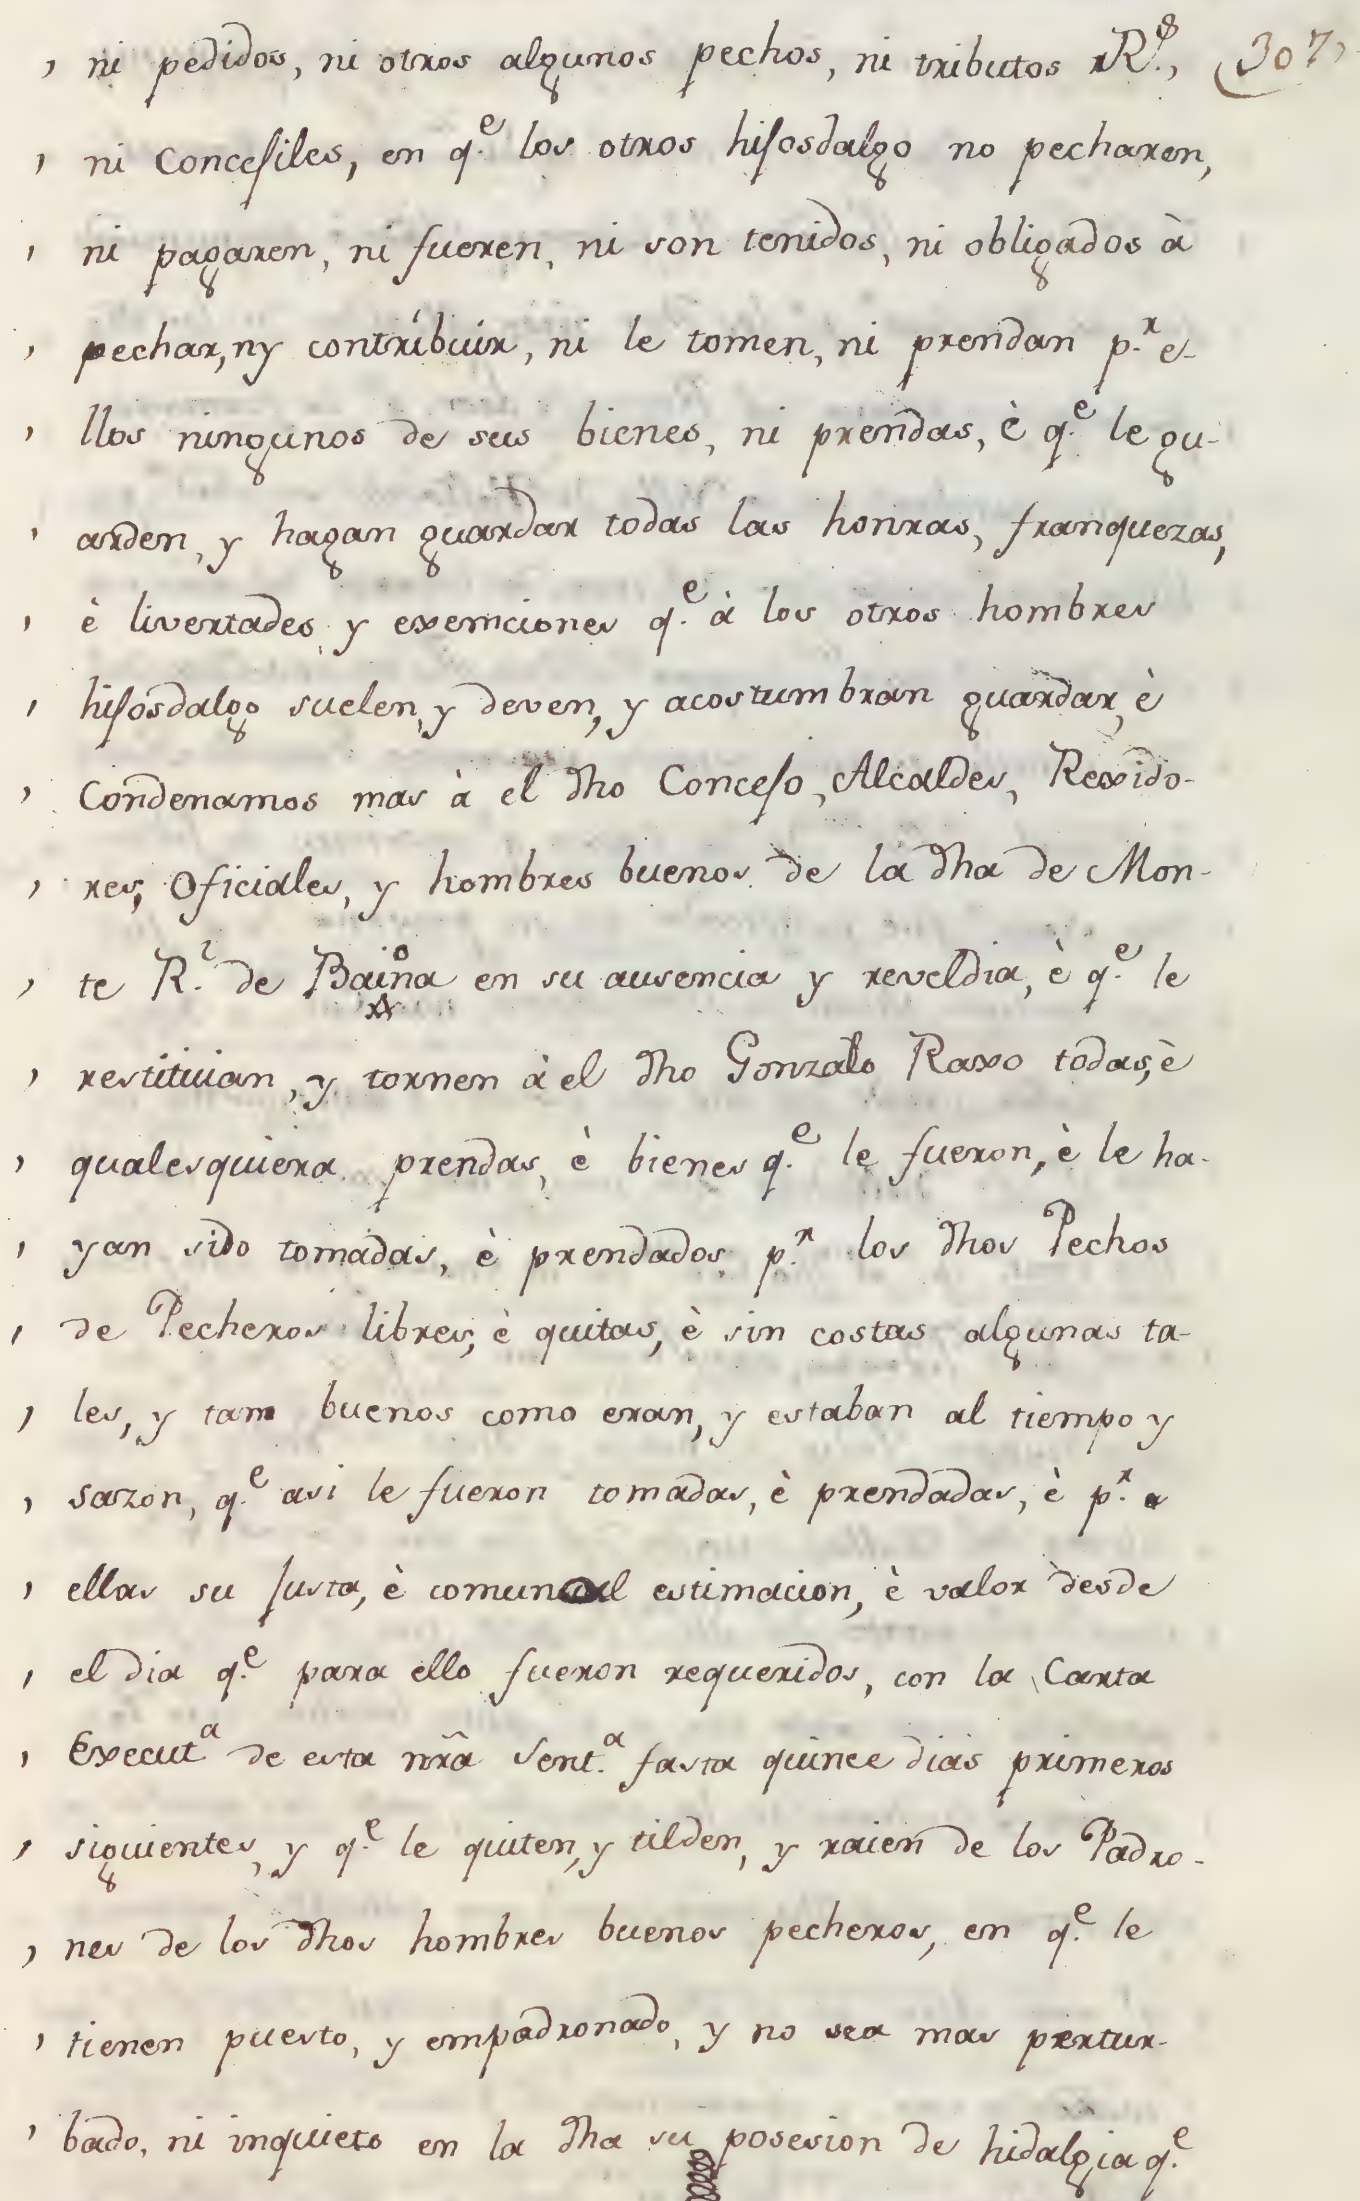 , ni pedidos, ni otros algunos pechos, ni tributos R.s, (307,
, ni Concejiles, en q.e los otros hijosdalgo no pecharen,
, ni pagaren, ni fueren, ni son tenidos, ni obligados à
, pechar, ny contribuir, ni le tomen, ni prendan p.r e-
, llos ningunos de sus bienes, ni prendas, è q.e le gu-
, arden, y hagan guardar todas las honras, franquezas,
, è livertades y exemciones q.e à los otros hombres
, hijosdalgo suelen, y deven, y acostumbran guardar, è
, Condenamos mas à el dho Concejo, Alcaldes, Rexido-
, res, Oficiales, y hombres buenos de la dha de Mon-
, te R.l de Baiona en su ausencia y reveldia, è q.e le
, restituian, y tornen à el dho Gonzalo Raxo todas, è
, qualesquiera prendas, è bienes q.e le fueron, è le ha-
, yan sido tomadas, è prendados p.r los dhos Pechos
, de Pecheros libres, è quitas, è sin costas algunas ta-
, les, y tam buenos como eran, y estaban al tiempo y
, sazon, q.e asi le fueron tomadas, è prendadas, è p.r
, ellas su justa, è comunal estimacion, è valor desde
, el dia q.e para ello fueron requeridos, con la Carta
, Execut.a de esta nrã Sent.a fasta quince dias primeros
, siguientes, y q.e le quiten, y tilden, y raien de los Padro-
, nes de los dhos hombres buenos pecheros, en q.e le
, tienen puesto, y empadronado, y no sea mas pertur-
, bado, ni inquieto en la dha su posesion de hidalgia q.e